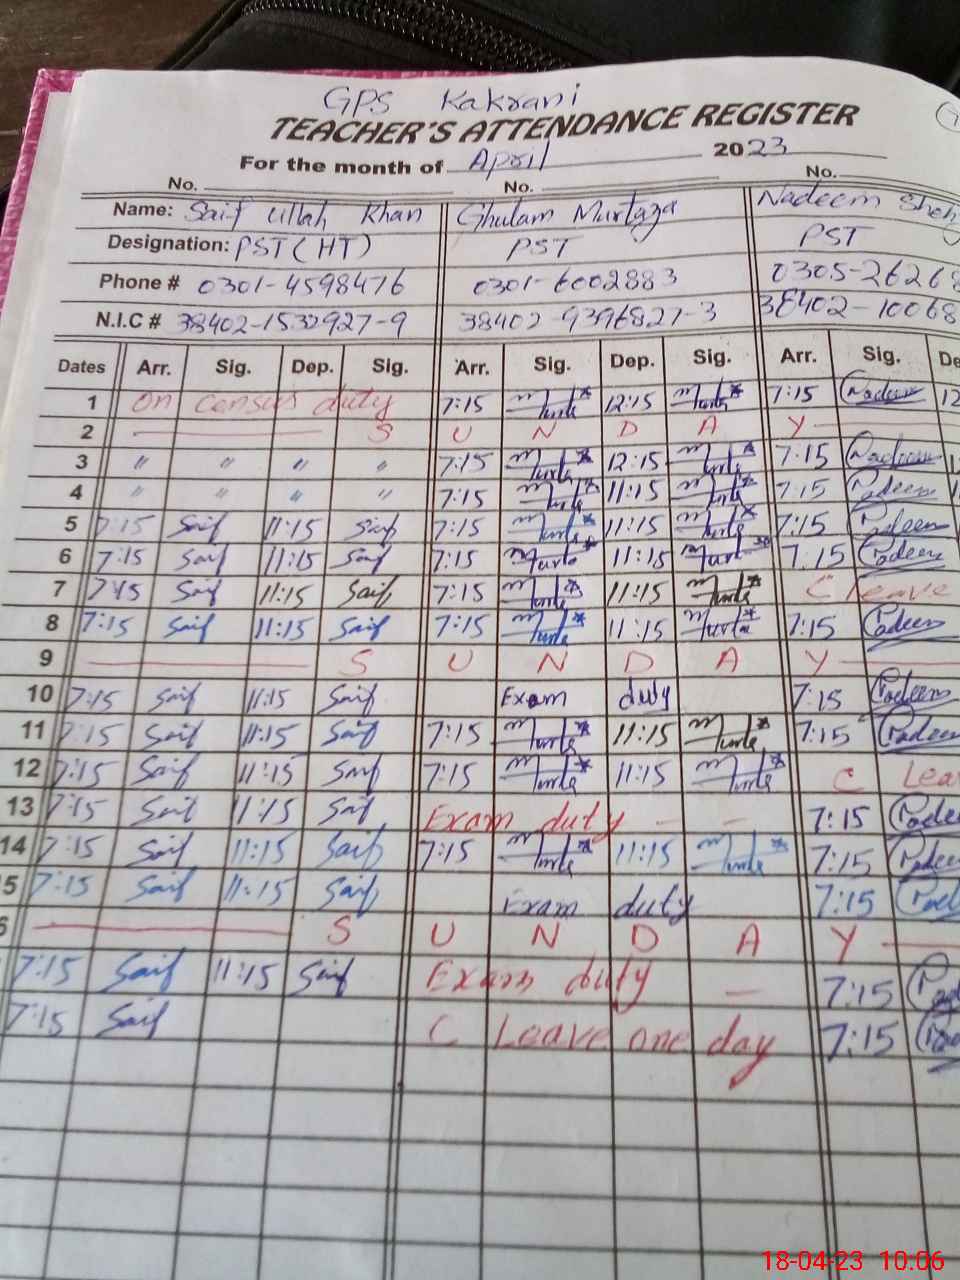 GPS Kakrani
TEACHER'S ATTENDANCE REGISTER
For the month of April 2023
No. No. No.
Name: Saif Ullah Khan Ghulam Murtaza Nadeem
Designation: PST (HT) PST PST
Phone # 0301-4598476 0301-6002883 0305-2626
N.I.C # 38402-1532927-9 38402-9396827-3 38402-10068
Dates Arr. Sig. Dep. Sig. Arr. Sig. Dep. Sig. Arr. Sig. De
1 On census duty 7:15 12:15 7:15 Nadeem 12
2 S U N D A Y
3 " " " " 7:15 12:15 7:15 Nadeem
4 " " " " 7:15 11:15 7:15 Nadeem
5 7:15 Saif 11:15 Saif 7:15 11:15 7:15 Nadeem
6 7:15 Saif 11:15 Saif 7:15 11:15 7:15 Nadeem
7 7:15 Saif 11:15 Saif 7:15 11:15 C leave
8 7:15 Saif 11:15 Saif 7:15 11:15 7:15 Nadeem
9 S U N D A Y
10 7:15 Saif 11:15 Saif Exam duty 7:15 Nadeem
11 7:15 Saif 11:15 Saif 7:15 11:15 7:15 Nadeem
12 7:15 Saif 11:15 Saif 7:15 11:15 C Lea
13 7:15 Saif 11:15 Saif Exam duty - - 7:15
14 7:15 Saif 11:15 Saif 7:15 11:15 7:15
5 7:15 Saif 11:15 Saif Exam duty 7:15
6 S U N D A Y
7:15 Saif 11:15 Saif Exam duty - 7:15
7:15 Saif C Leave one day 7:15
18-04-23 10:06